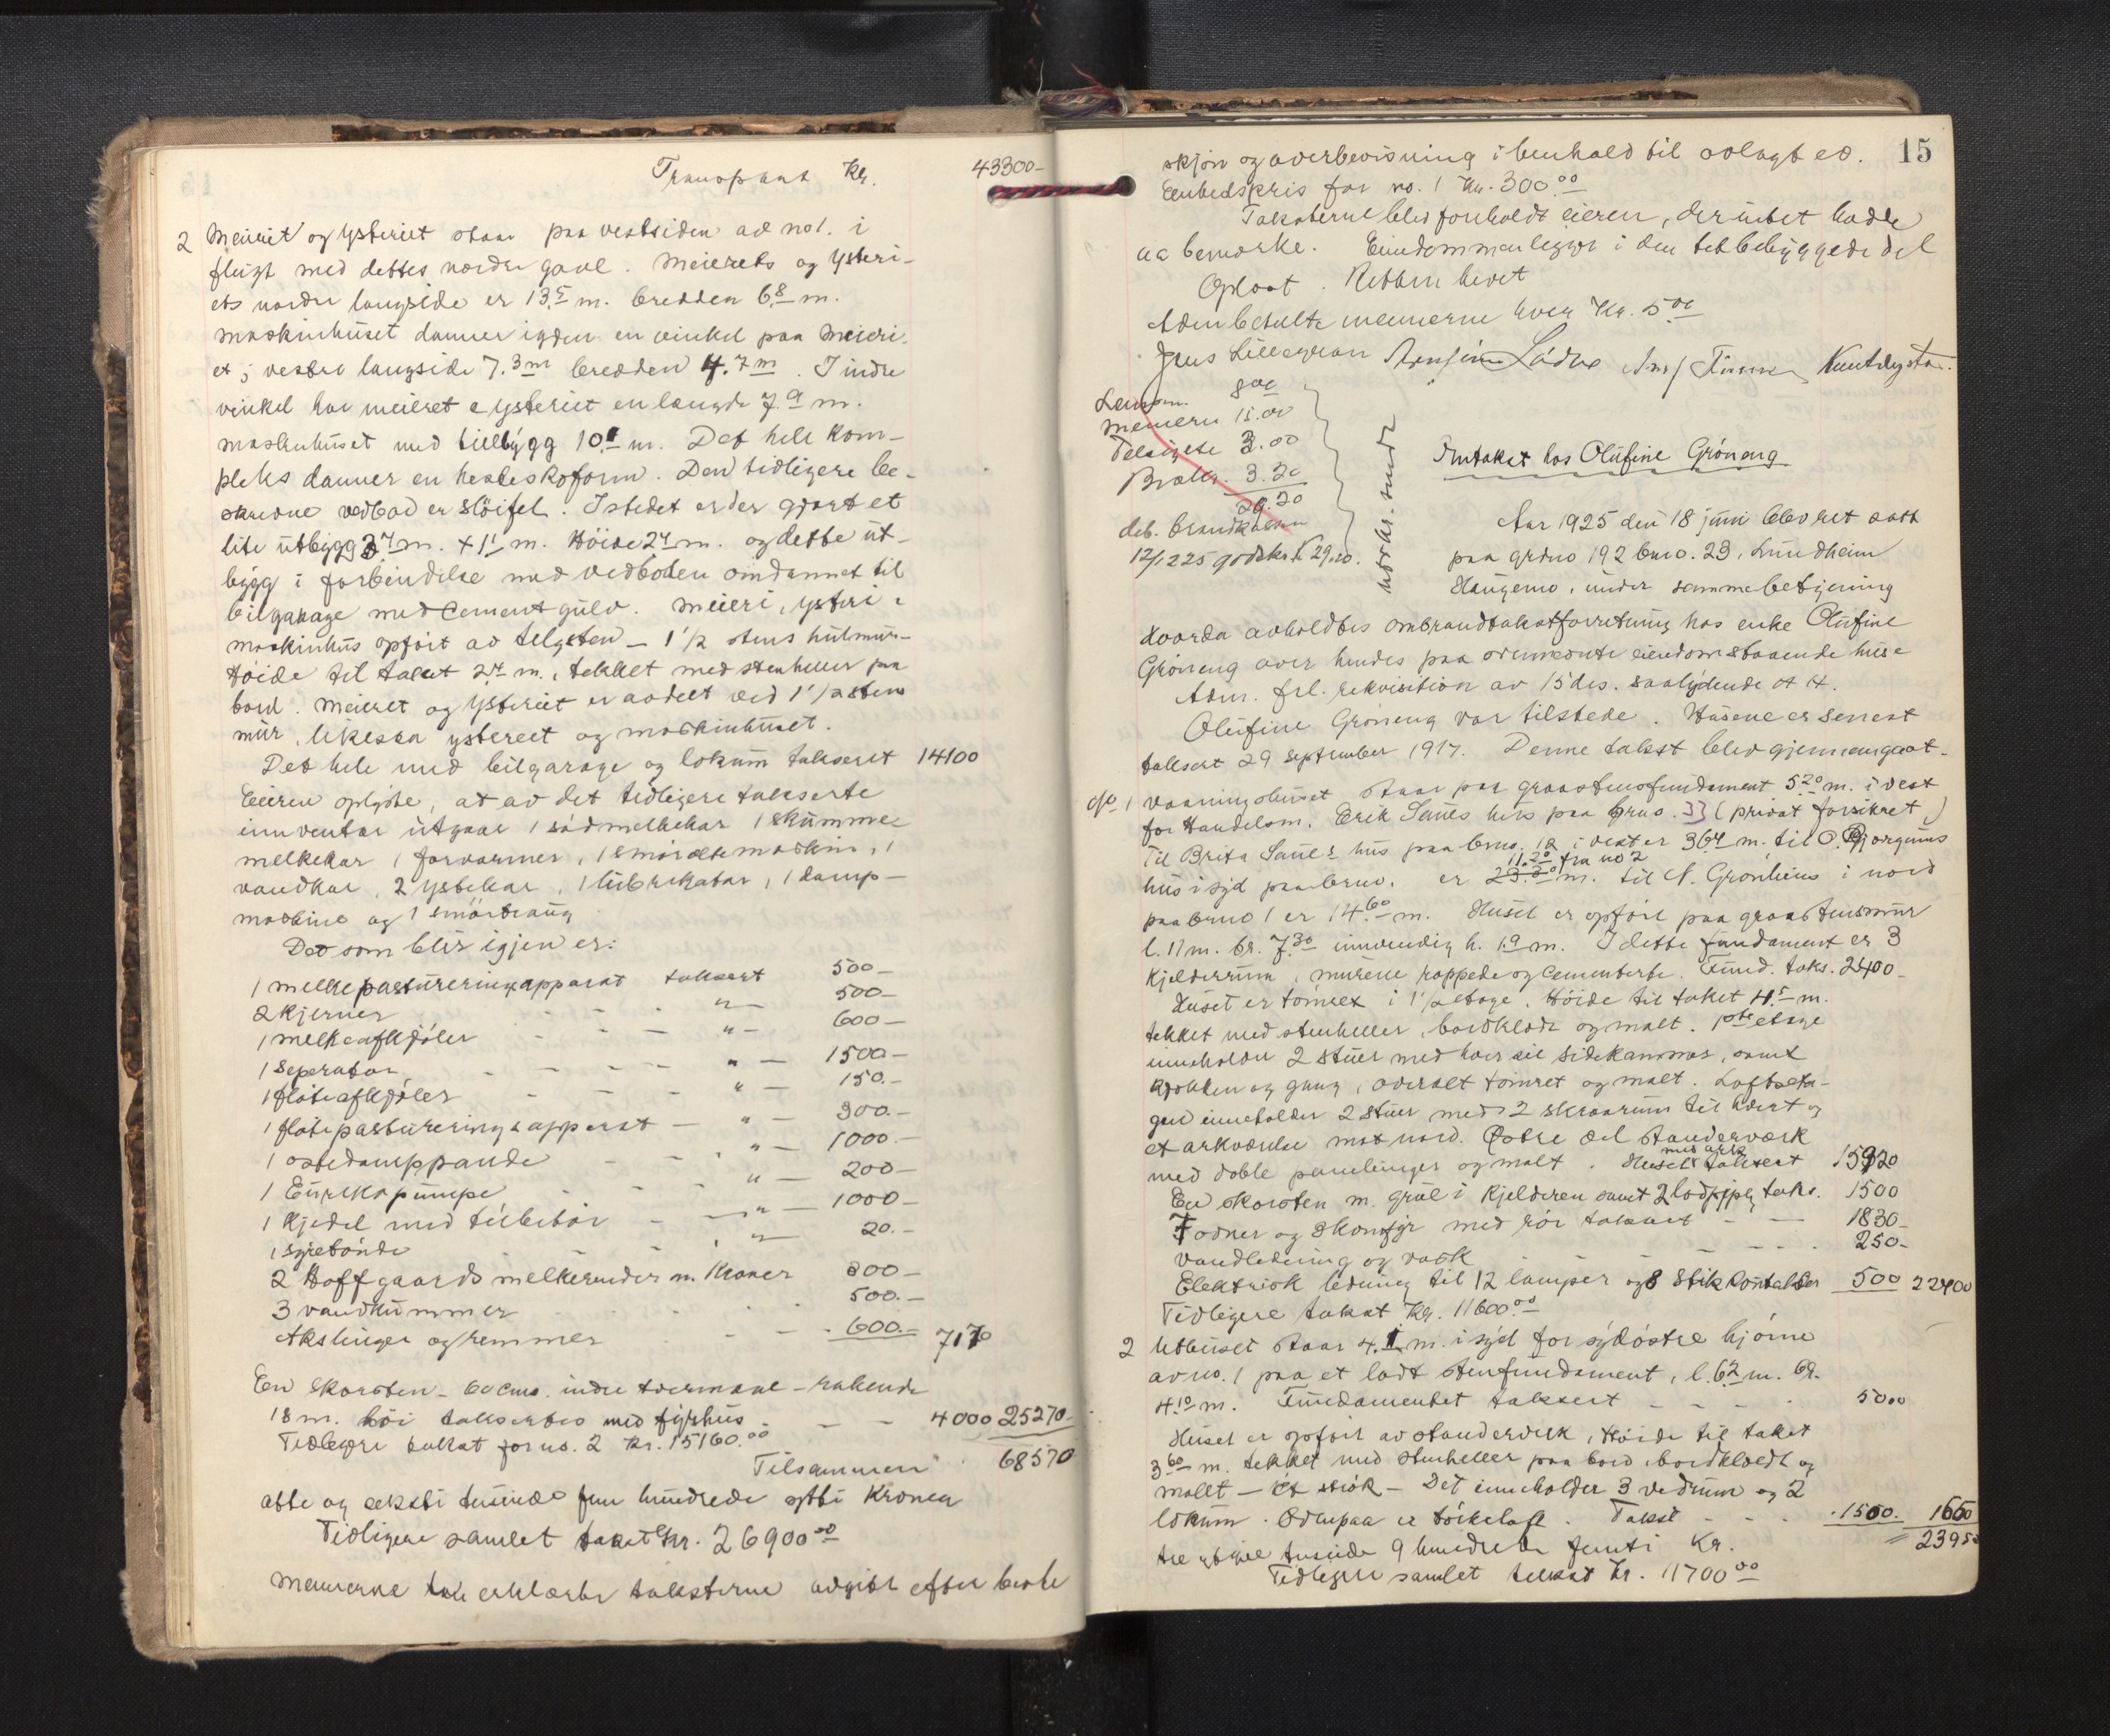 Transport Kr. 43300-
2 Meieriet og ysteriet staar paa vestsiden av no 1. i
flugt med dettes nordre gavl. Meierets og ysteri-
ets nordre langside er 13.5 m. bredden 6.8 m.
maskinhuset danner igjen en vinkel paa Meieri-
et; vestre langside 7.3 m bredden 4.7 m. I indre
vinkel har meieriet & ysteriet en længde 7.9 m.
maskinhuset med tillbygg 10.1 m. Det hele kom-
pleks danner en hesteskoform. Den tidligere be-
skrevne vedbod er sløifet. Istedet er der gjort et
lite utbygg 3.4 m. + 1.1 m. Høide 2.4 m. og dette ut-
bygg i forbindelse med vedboden omdannet til
bilgarage med cementgulv. Meieri, ysteri &
maskinhus opført av telgsten - 1 1/2 stens hulmur-
Høide til taket 2.4 m., tekket med stenheller paa
bord. Meieriet og ysteriet er avdelt ved 1 1/2 stens
mur, likesaa ysteriet og maskinhuset.
Det hele med bilgarage og lokum takseret 14100
Eieren oplyste, at av det tidligere takserte
inventar utgaar 1 sødmelkekar 1 skumme-
melkekar 1 forvarmer, 1 smøreltemaskin, 1
vandkar, 2 ystekar, 1 lubrikator, 1 damp-
maskine og 1 smørtraug
Det som blir igjen er:
1 melkepastureringsapparat taksert 500-
2 kjerner - - - " - 500-
1 melkeafkjøler - - - " - 600-
1 Seperator - - - - " - 1500-
1 fløteafkjøler - - - " - 150.-
1 fløtepastureringsapparat - " - 300.-
1 ostedamppande - - - " - 1000.-
1 Eurekapumpe - - - " - 200-
1 Kjedel med tilbehør - - " - 1000-
1 syrebønde - " - 20.-
2 Hoffgaards melkerender m. Kraner 300-
3 vandkummer - - - 500.-
Akslinger og remmer - - - 600.- 7170
En skorsten - 60 cm. indre tvermaal - rukende
18 m. høi takseres med fyrhus - - - 4000 25270-
Tidligere takst for no. 2 Kr. 15160.00
Tilsammen 68570
otte og seksti tusinde fem hundrede sytti Kroner
Tidligere samlet takst Kr. 26900.00
Mennerne erklærte taksterne avgitt efter beste
15
skjøn og overbevisning i henhold til avlagt ed.
Enhedspris for no. 1 Kr. 300.00
Taksterne blev foreholdt eieren, der intet hadde
aa bemerke. Eiendommen ligger i den tetbebyggede del
Oplæst. Retten hevet
Aden betalte mennerne hver Kr. 5.00
Jens Lillegraven
Lensm. 8.00
mennene 15.00
Telsigelse 3.00
Brækr. 3.20
29.20
deb. brandkassen
12/1225 godskr. K 29.20.
Omtakst hos Olufine Grøneng
Aar 1925 den 18 juni blev ret satt
paa grdno 192 bno. 23, Lundheim
Haugemo, under samme betjening
Hvorda avholdtes ombrandtakstforretning hos enke Olufine
Grøneng over hendes paa ovennevnte eiendom staaende huse
Adm. frl. rekvisition av 15 ds. saalydende A A.
Olufine Grøneng var tilstede. Husene er senest
taksert 29 september 1917. Denne takst blev gjennemgaat-
1 Vaaningshuset staar paa graastensfundament 5.20 m. i vest
for Handelsm. Erik Saues hus paa bno. 33 (privat forsikret)
Til Brita Saues hus paa bno. 12 i vest er 36.4 m. til O. Bjørgums
11.20 fra no 2
hus i syd paa bno. er 23.30 m. til N. Grønlien i nord
paa bno 1 er 14.60 m. Huset er opført paa graastensmur
l. 11 m. br. 7.30 innvendig h. 1.9 m. I dette fundament er 3
kjelderrum, murene rappede og cementerte. Fund. taks. 2400-
Huset er tømret i 1 1/2 etage. Høide til taket 4.5 m.
tekket med stenheller, bordklædt og malt. 1ste etage
inneholder 2 stuer med hver sit sidekammer, samt
kjøkken og gang, overalt tømret og malt. Loftseta-
gen inneholder 2 stuer med 2 skraarum til hvert og
et arkværelse mot nord. Østre del standerværk
med doble panelinger og malt. Huset med ark taksert 15920
En skorsten m. grue i kjelderen samt 2 lodpipe taks. 1500
7 ovner og 3 komfyr med rør taksert - - 1830-
Vandledning og vask - - - - - 250-
Elektrisk ledning til 12 lamper og 8 stikkontakter 500 22400
Tidligere takst Kr. 11600.00
2 Uthuset staar 4.1 m. i syd for sydøstre hjørne
av no. 1 paa et lødt stenfundament, l. 6.2 m. br.
4.10 m. Fundamentet taksert - - - - 50.00
Huset er opført av standerverk, Høide til taket
3.60 m. tekket med stenheller paa bord, bordklædt og
malt - et strøk - Det inneholder 3 vedrum og 2
lokum. Ovenpaa er tørkeloft. Takst - - - 1500. 1550
tre og tyve tusinde 9 hundrede femti Kr. 23950
Tidligere samlet takst Kr. 11700.00